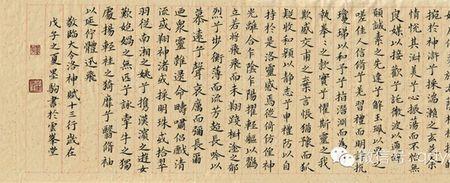 於神滸兮采湍瀨之玄芝余
情悅其淑美兮心振蕩而不怡無
良媒以接歡兮託微波以通辭
願誠素之先達兮解玉珮以要之
嗟佳人之信脩兮羌習禮而明詩抗
瓊珶以和予兮指潛淵而為期
執眷眷之款實兮懼斯靈之我
欺感交甫之棄言悵猶豫而狐
疑收和顏以靜志兮申禮防以自
持於是洛靈感焉徙倚仿偟神
光離合乍陰乍陽擢輕軀以鶴
立若將飛而未翔踐椒塗之郁
烈兮步蘅薄而流芳超長吟以
慕遠兮聲哀厲而彌長爾
迺眾靈雜遝命疇嘯侶或戲清
流或翔神渚或採明珠或拾翠
羽從南湘之二妃兮攜漢濱之遊女
歎匏媧之無匹兮詠牽牛之獨
處揚輕袿之猗靡兮翳脩袖
以延佇體迅飛
敬臨大令洛神賦十三行歲在
戊子之夏墨駒書於雲峯堂